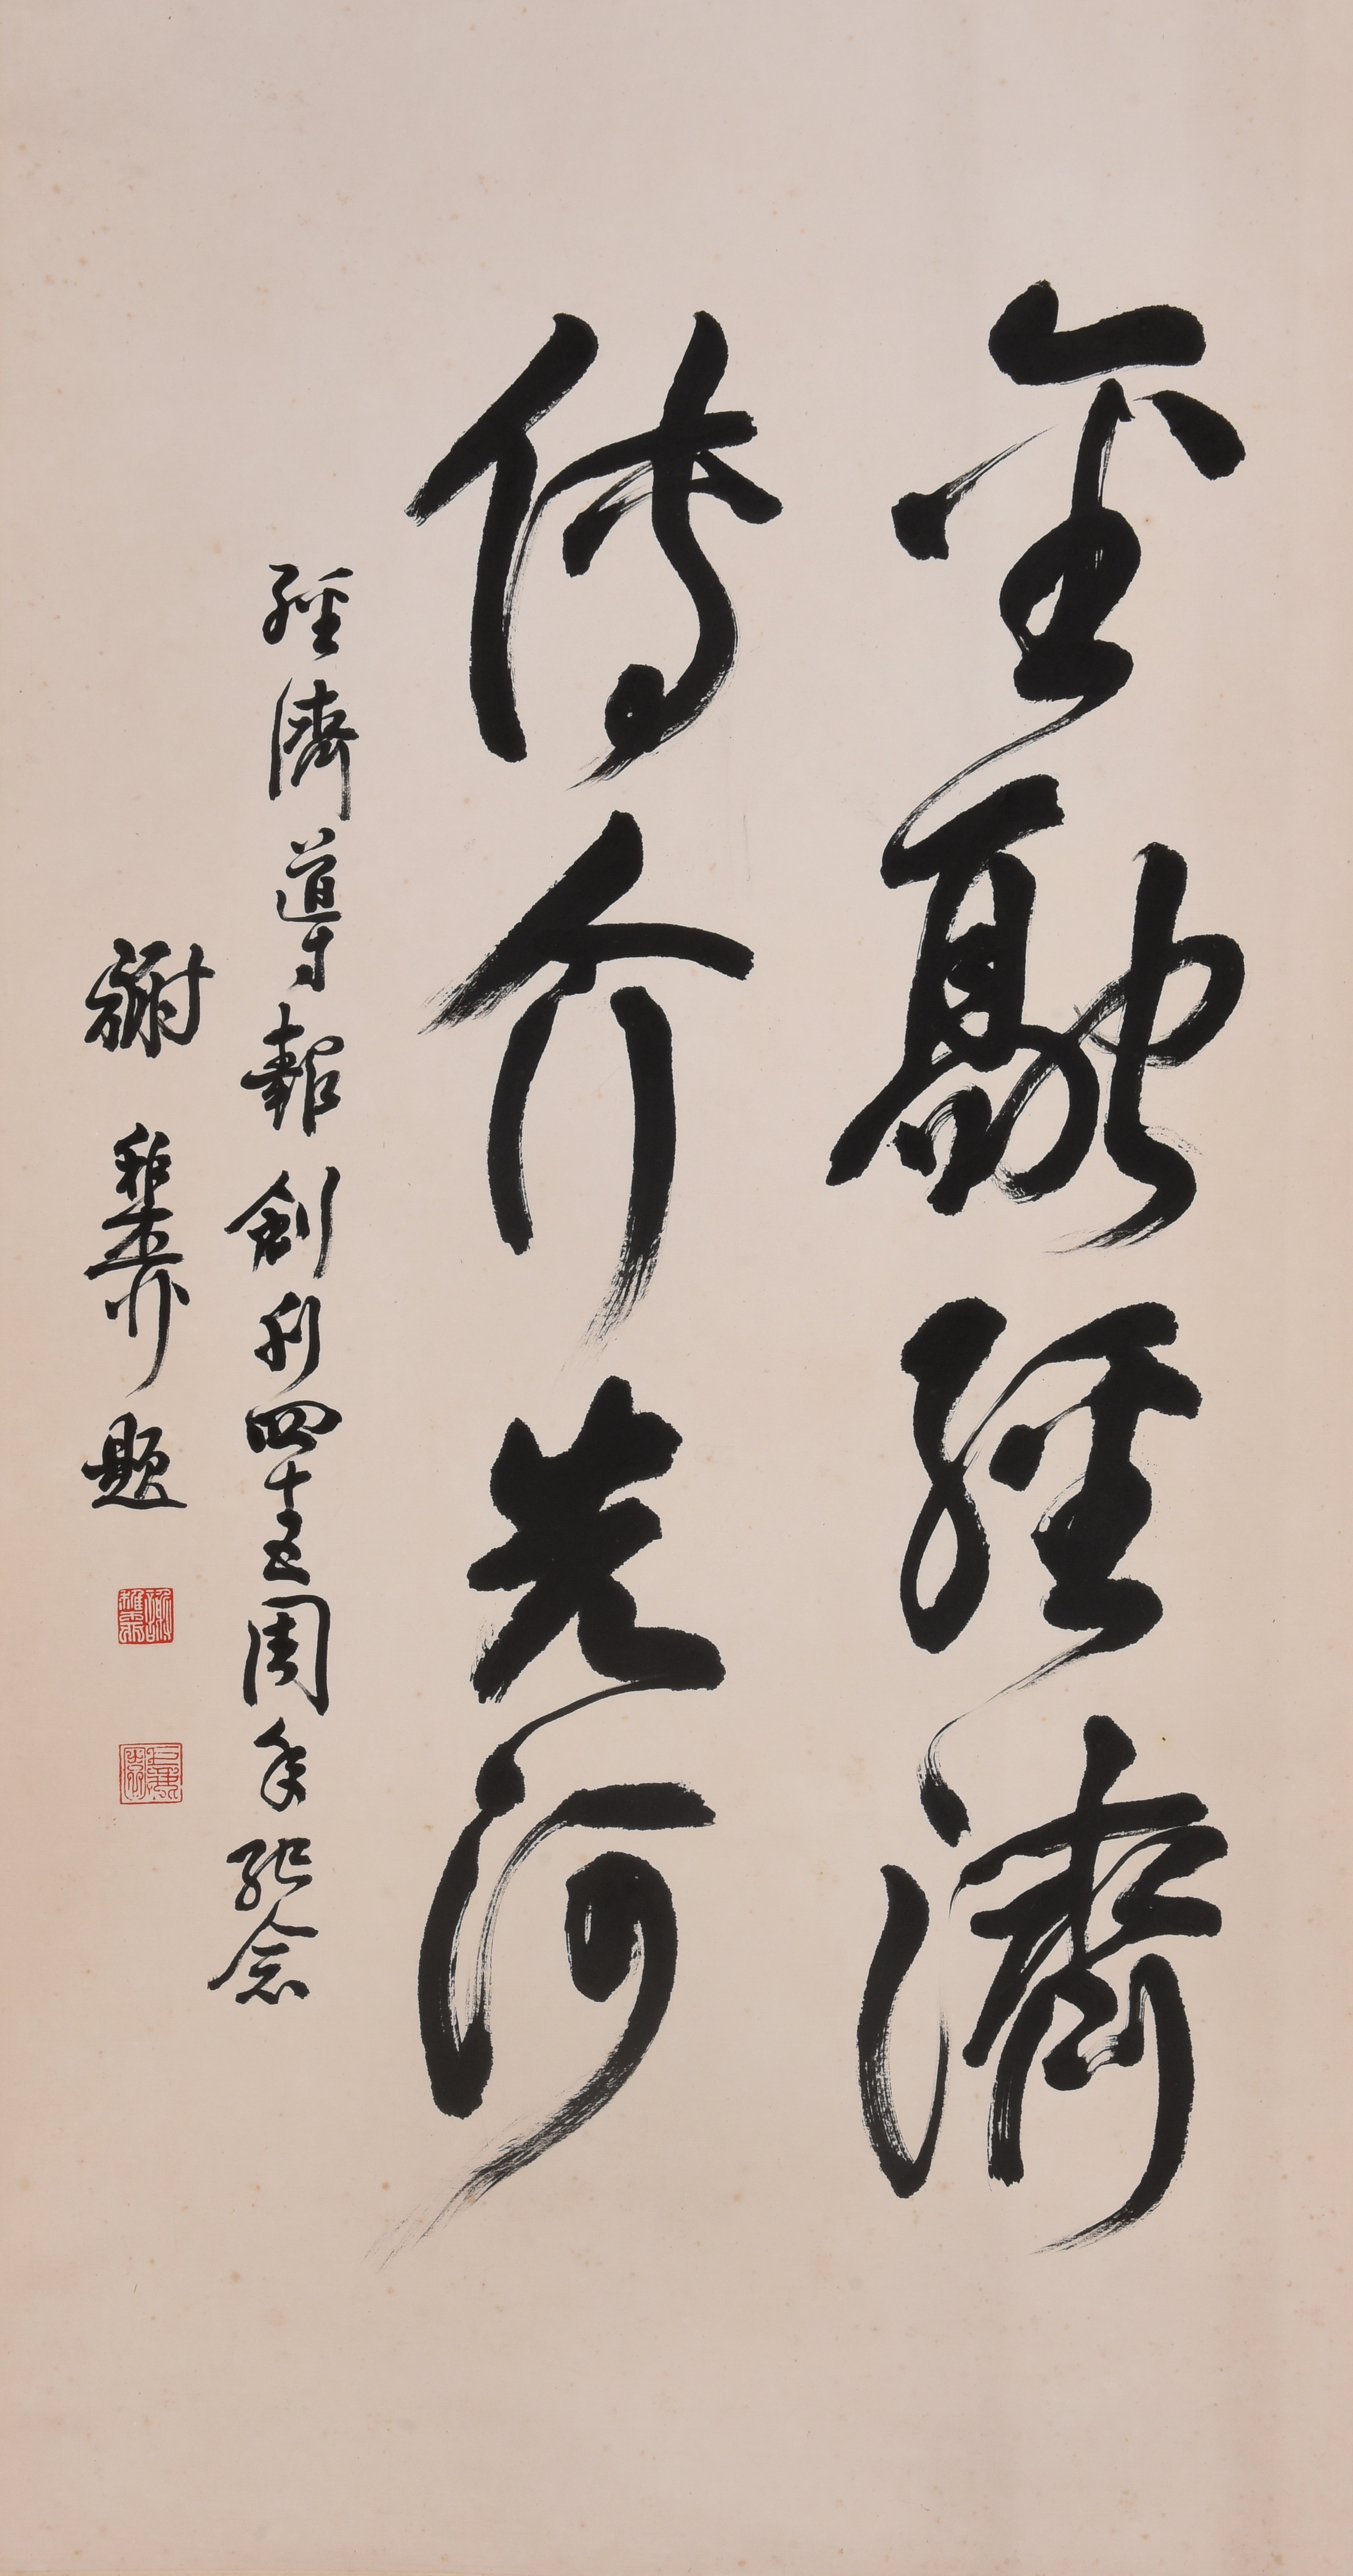 金融經濟
傳介先河
經濟導報創刊四十五周年紀念
謝稚柳題